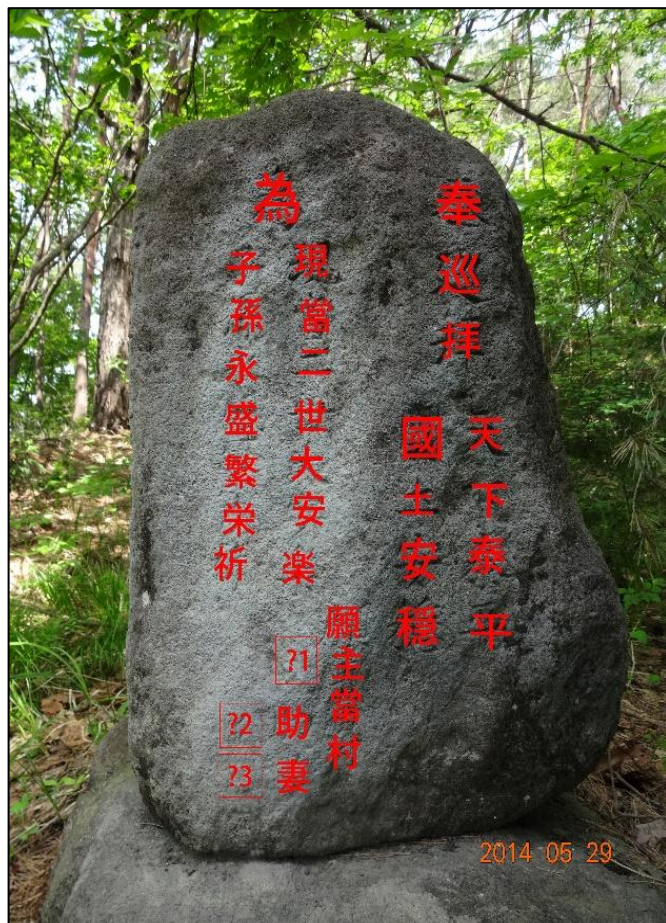 奉巡拝
天下泰平
國土安穏
為
現當二世大安楽
子孫永盛繁栄祈
願主當村
?1助妻
?2?3
2014 05 29